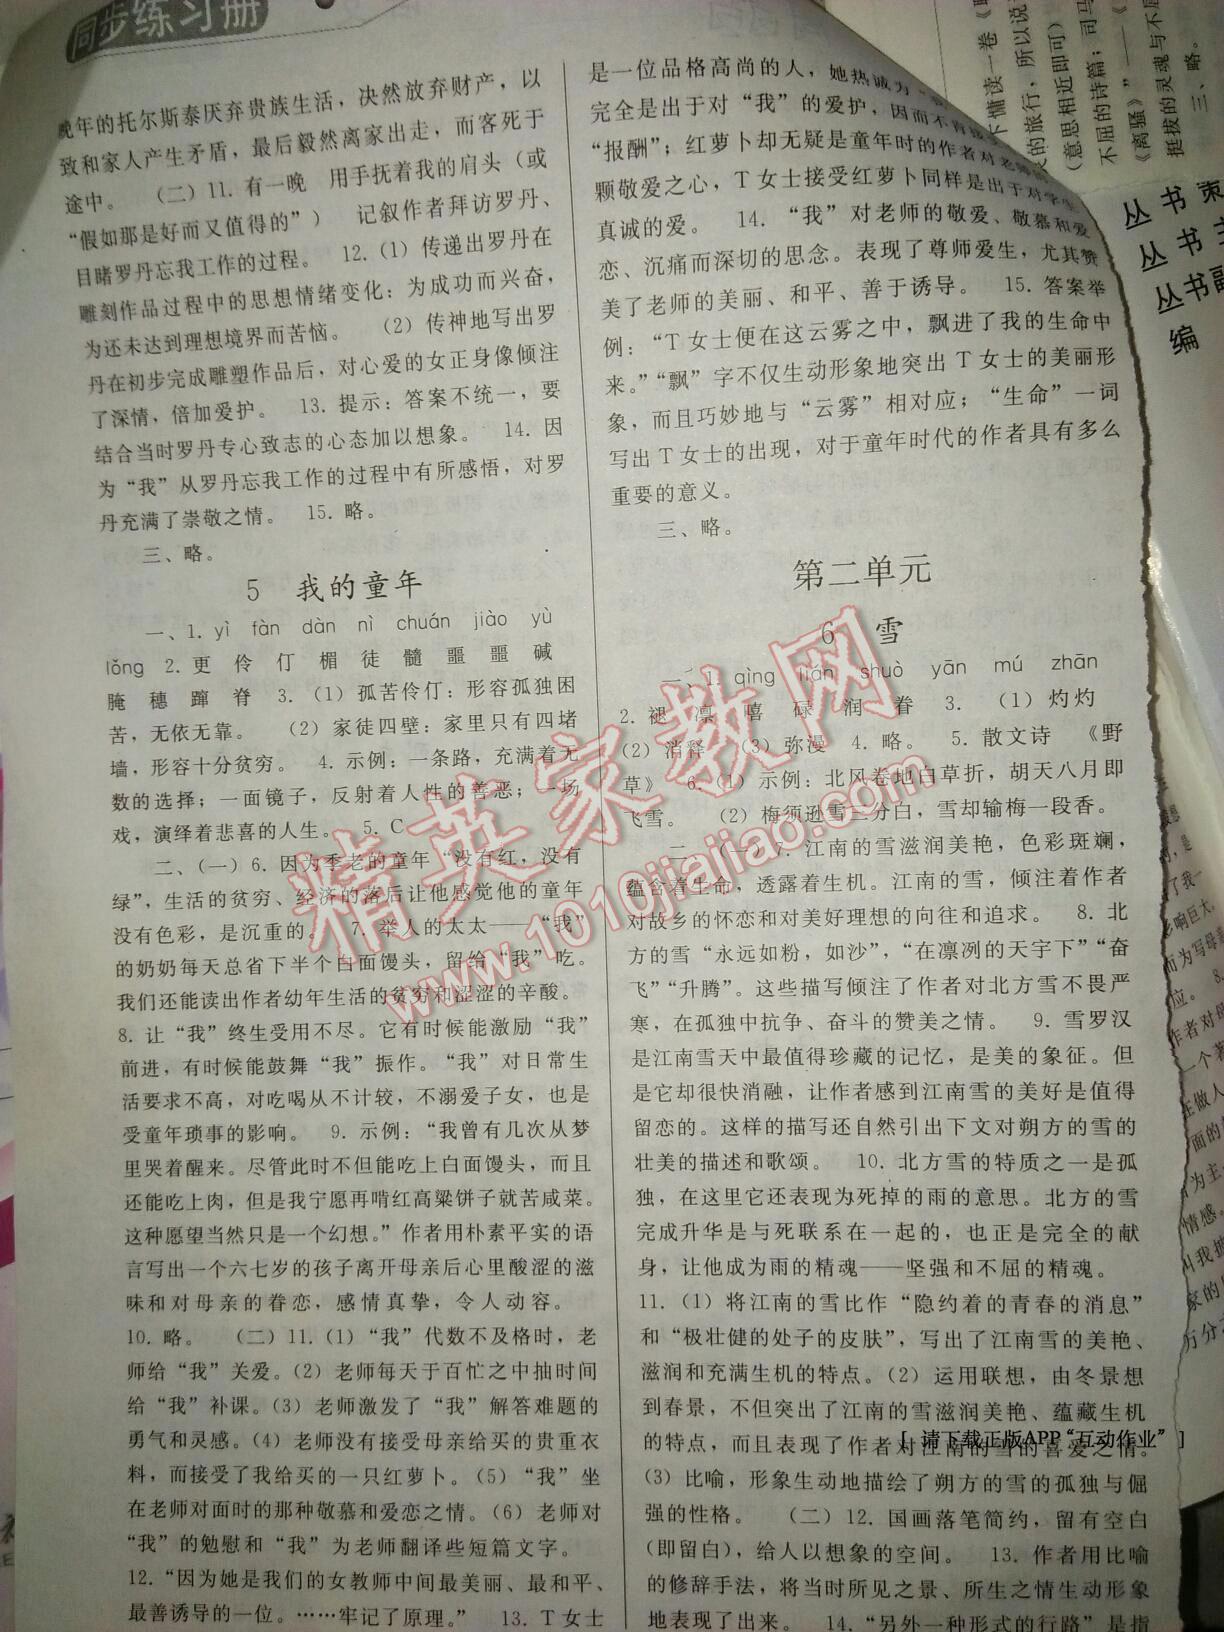 同步练习册
晚年的托尔斯泰厌弃贵族生活，决然放弃财产，以
致和家人产生矛盾，最后毅然离家出走，而客死于
途中。　（二）11. 有一晚　用手扶着我的肩头（或
“假如那是好而又值得的”）　记叙作者拜访罗丹、
目睹罗丹忘我工作的过程。　12.（1）传递出罗丹在
雕刻作品过程中的思想情绪变化：为成功而兴奋，
为还未达到理想境界而苦恼。　（2）传神地写出罗
丹在初步完成雕塑作品后，对心爱的女正身像倾注
了深情，倍加爱护。　13. 提示：答案不统一，要
结合当时罗丹专心致志的心态加以想象。　14. 因
为“我”从罗丹忘我工作的过程中有所感悟，对罗
丹充满了崇敬之情。　15. 略。
三、略。
5　我的童年
一、1. yì　fàn　dàn　nì　chuán　jiào　yù
lǒng　2. 更　伶　仃　楣　徒　髓　噩　噩　碱
腌　穗　蹿　脊　3.（1）孤苦伶仃：形容孤独困
苦，无依无靠。　（2）家徒四壁：家里只有四堵
墙，形容十分贫穷。　4. 示例：一条路，充满着无
数的选择；一面镜子，反射着人性的善恶；一场
戏，演绎着悲喜的人生。　5. C
二、（一）6. 因为季老的童年“没有红，没有
绿”，生活的贫穷、经济的落后让他感觉他的童年
没有色彩，是沉重的。　7. 举人的太太——“我”
的奶奶每天总省下半个白面馒头，留给“我”吃。
我们还能读出作者幼年生活的贫穷和涩涩的辛酸。
8. 让“我”终生受用不尽。它有时候能激励“我”
前进，有时候能鼓舞“我”振作。“我”对日常生
活要求不高，对吃喝从不计较，不溺爱子女，也是
受童年琐事的影响。　9. 示例：“我曾有几次从梦
里哭着醒来。尽管此时不但能吃上白面馒头，而且
还能吃上肉，但是我宁愿再啃红高粱饼子就苦咸菜。
这种愿望当然只是一个幻想。”作者用朴素平实的语
言写出一个六七岁的孩子离开母亲后心里酸涩的滋
味和对母亲的眷恋，感情真挚，令人动容。
10. 略。　（二）11.（1）“我”代数不及格时，老
师给“我”关爱。（2）老师每天于百忙之中抽时间
给“我”补课。（3）老师激发了“我”解答难题的
勇气和灵感。（4）老师没有接受母亲给买的贵重衣
料，而接受了我给买的一只红萝卜。（5）“我”坐
在老师对面时的那种敬慕和爱恋之情。（6）老师对
“我”的勉慰和“我”为老师翻译些短篇文字。
12.“因为她是我们的女教师中间最美丽、最和平、
最善诱导的一位。……牢记了原理。”　13. T女士
是一位品格高尚的人，她热诚为“我
完全是出于对“我”的爱护，因而不肯接
“报酬”；红萝卜却无疑是童年时的作者对老师
颗敬爱之心，T女士接受红萝卜同样是出于对学生
真诚的爱。　14. “我”对老师的敬爱、敬慕和爱
恋、沉痛而深切的思念。表现了尊师爱生，尤其赞
美了老师的美丽、和平、善于诱导。　15. 答案举
例：“T女士便在这云雾之中，飘进了我的生命中
来。”“飘”字不仅生动形象地突出T女士的美丽形
象，而且巧妙地与“云雾”相对应；“生命”一词
写出T女士的出现，对于童年时代的作者具有多么
重要的意义。
三、略。
第二单元
6　雪
一、1. qìng　lián　shuò　yān　mú　zhān
2. 褪　凛　嘻　碌　润　眷　3.（1）灼灼
（2）消释　（3）弥漫　4. 略。　5. 散文诗　《野
草》　6.（1）示例：北风卷地白草折，胡天八月即
飞雪。　（2）梅须逊雪三分白，雪却输梅一段香。
二、（一）7. 江南的雪滋润美艳，色彩斑斓，
蕴含着生命，透露着生机。江南的雪，倾注着作者
对故乡的怀恋和对美好理想的向往和追求。　8. 北
方的雪“永远如粉，如沙”，“在凛冽的天宇下”“奋
飞”“升腾”。这些描写倾注了作者对北方雪不畏严
寒，在孤独中抗争、奋斗的赞美之情。　9. 雪罗汉
是江南雪天中最值得珍藏的记忆，是美的象征。但
是它却很快消融，让作者感到江南雪的美好是值得
留恋的。这样的描写还自然引出下文对朔方的雪的
壮美的描述和歌颂。　10. 北方雪的特质之一是孤
独，在这里它还表现为死掉的雨的意思。北方的雪
完成升华是与死联系在一起的，也正是完全的献
身，让他成为雨的精魂——坚强和不屈的精魂。
11.（1）将江南的雪比作“隐约着的青春的消息”
和“极壮健的处子的皮肤”，写出了江南雪的美艳、
滋润和充满生机的特点。（2）运用联想，由冬景想
到春景，不但突出了江南的雪滋润美艳、蕴藏生机
的特点，而且表现了作者对江南的雪的喜爱之情。
（3）比喻，形象生动地描绘了朔方的雪的孤独与倔
强的性格。　（二）12. 国画落笔简约，留有空白
（即留白），给人以想象的空间。　13. 作者用比喻
的修辞手法，将当时所见之景、所生之情生动形象
地表现了出来。　14. “另外一种形式的行路”是指
[ 请下载正版APP“互动作业” ]
精英家教网
www.1010jiajiao.com
下慵读一卷《
的旅行，所以说
（意思相近即可）
不屈的诗篇；司马
《离骚》”——《
挺拔的灵魂与不屈
三、略。
丛书策
丛书主
丛书副
编